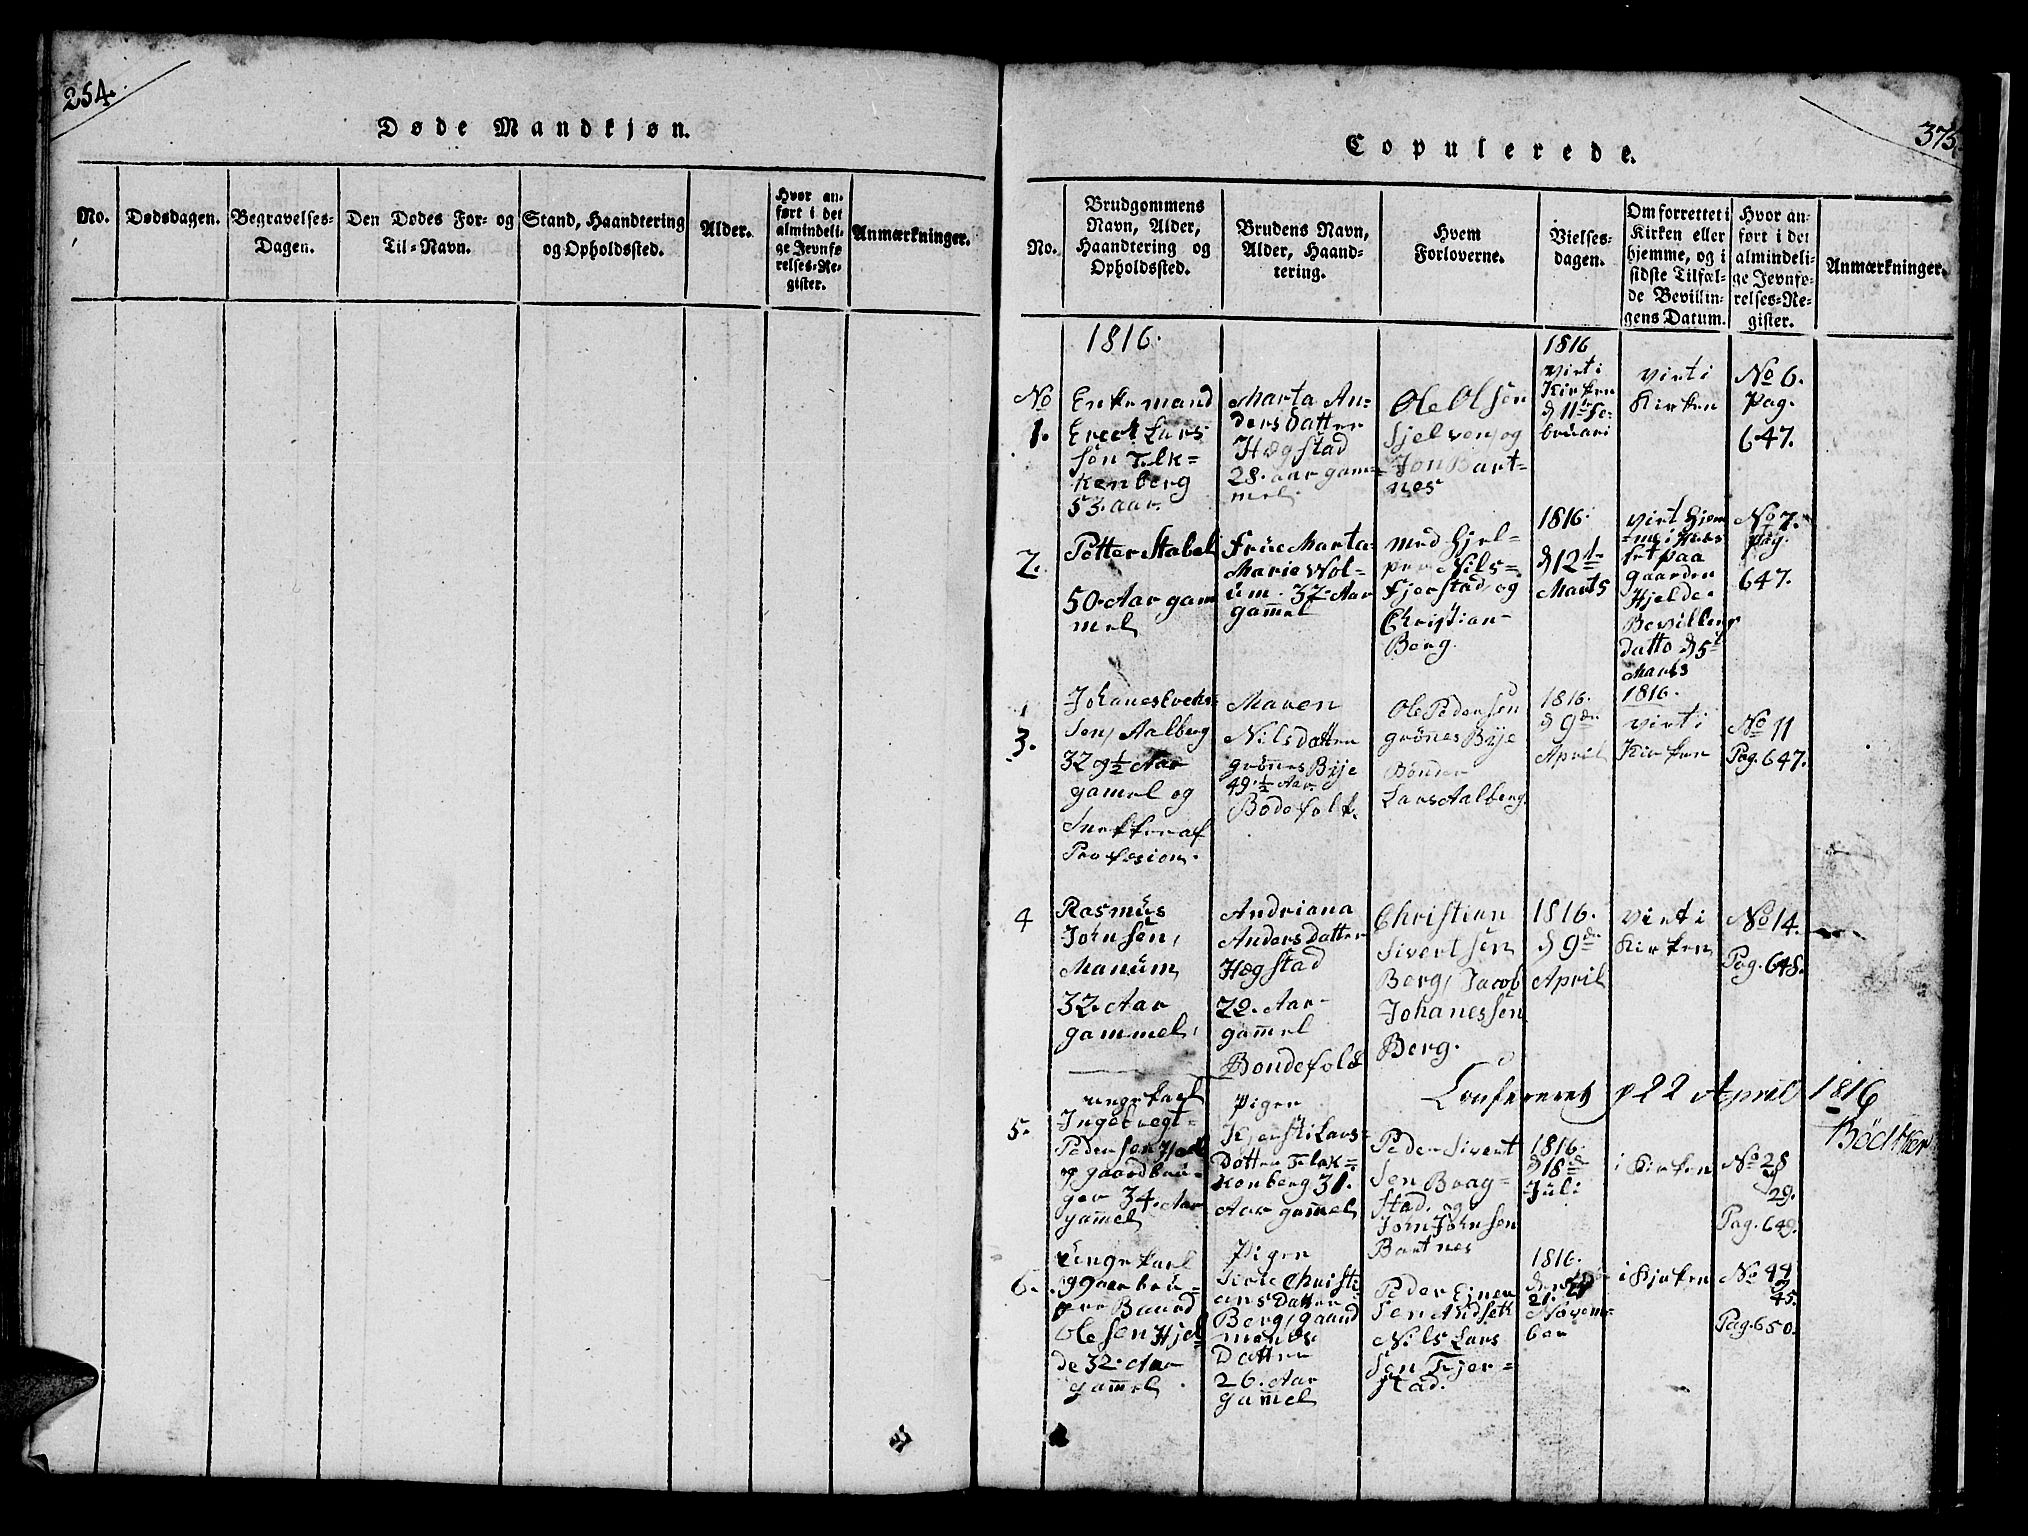 254.
Døde Mandkjøn.
No.
Dødsdagen.
Begravelses-
Dagen.
Den Dødes For- og
Til-Navn.
Stand, Haandtering
og Opholdssted.
Alder.
Hvor an-
ført i det
almindeli-
ge Jevnfø-
relses-Re-
gister.
Anmærkninger.
375.
Copulerede.
No.
Brudgommens
Navn, Alder,
Haandtering og
Opholdssted.
Brudens Navn,
Alder, Haand-
tering.
Hvem
Forloverne.
Vielses-
dagen.
Om forrettet i
Kirken eller
hjemme, og i
sidste Tilfæl-
de Bevillin-
gens Datum.
Hvor an-
ført i det
almindeli-
ge Jevnfø-
relses-Re-
gister.
Anmærkninger.
1816.
No
1.
Enkemand
Ereck Lars
sen
53. aar.
Marta An-
dersdatter
Hægstad
28. aar gam-
mel.
Ole Olsen
og
Jon Bart-
nes
1816
viet i
Kirken
d 11te Fe-
bruari
viet i
Kirken
No 6.
Pag.
647.
2.
Petter Stabel
50. Aar gam
mel
Früe Marta
Marie Wol-
üm. 37. Aar
gammel
med hjel-
per Nils
Fjerstad og
Christian
Berg.
1816.
d 12te
Marts
viet hjem
me i Hüs
set paa
gaarden
Hjelde
Bevillings
datto d 5t
Marts
1816.
No 7.
Pag.
647.
3.
Johanes
Sen Aalberg
32 1/2 Aar
gamel og
Snekker af
Profesion.
Maren
Nilsdatter
grönes Bye
49 1/2 Aar
Bödefolk.
Ole Pedersen
grönes Bye
Bönder
Lars Aalberg
1816.
d 9de
April
viet i
Kirken
No 11
Pag. 647.
4
Rasmüs
Johnsen
Manüm
32. Aar
gammel,
Andriana
Andersdatter
Hægstad
22. Aar
gammel
Bondefolck
Christian
Sivertsen
Berg, Jacob
Johanessen
Berg.
1816.
d 9de
April
viet i
Kirken
No 14.
Pag. 648.
Confereret d 22 April 1816
Bödtker
5.
ungekarl
Ingebregt
Pedersen
og gaardbrü-
ger 34. Aar
gammel
Pigen
Kjersti Lars-
datter
31.
Aar gammel
Peder Sivert
Sen Brag-
Stad. og
Jon Johnsen
Bartnes
1816.
d 18de
Juli
i Kirken
No 28
29.
Pag. 649.
6.
Ungekarl
Baard
Olesen Hjel
de 32. Aar
gammel.
Pigen
Christi
ans Datter
Berg, gaard
mands
Datter
26. Aar
gammel
Peder Ejner
Sen Aüdset
Nils Lars
Sen Fjer-
stad.
1816.
21.
Novem-
ber
i Kjrken
No 44
45.
Pag. 650.